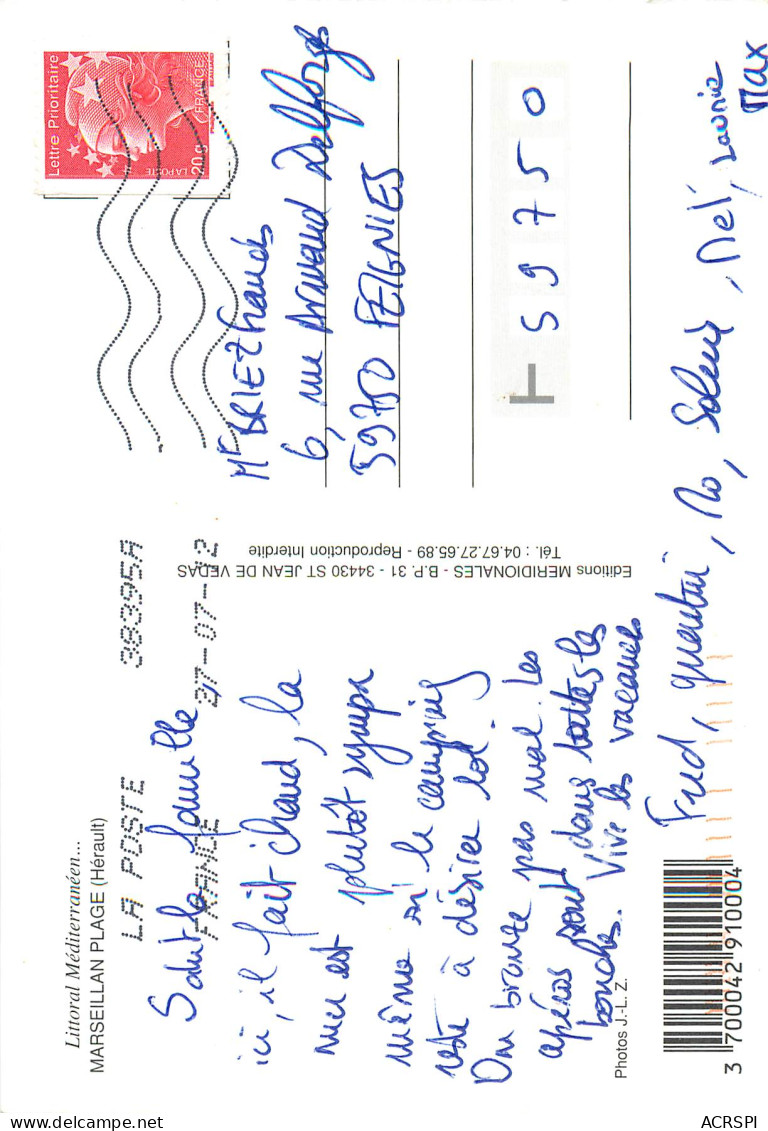 Littoral Méditerranéen...
MARSEILLAN PLAGE (Hérault)
LA POSTE 38395A
FRANCE 27-07-12
Salut la famille
ici, il fait chaud, la
mer est plutôt sympa
même si le camping
reste à désirer lol.
On bronze pas mal. Les
apéros sont dans toutes les
bouches. Vive les vacances
Fred, quentin, No, Solene, Mel, Laurie
Max
Photos J.-L. Z.
3 700042 910004
Editions MERIDIONALES - B.P. 31 - 34430 ST JEAN DE VEDAS
Tél. : 04.67.27.65.89 - Reproduction Interdite
Lettre Prioritaire
LA POSTE
20g
FRANCE
Mr BRIEZ francis
6, rue Armand Delforge
59750 FEIGNIES
59750
ACRSPI